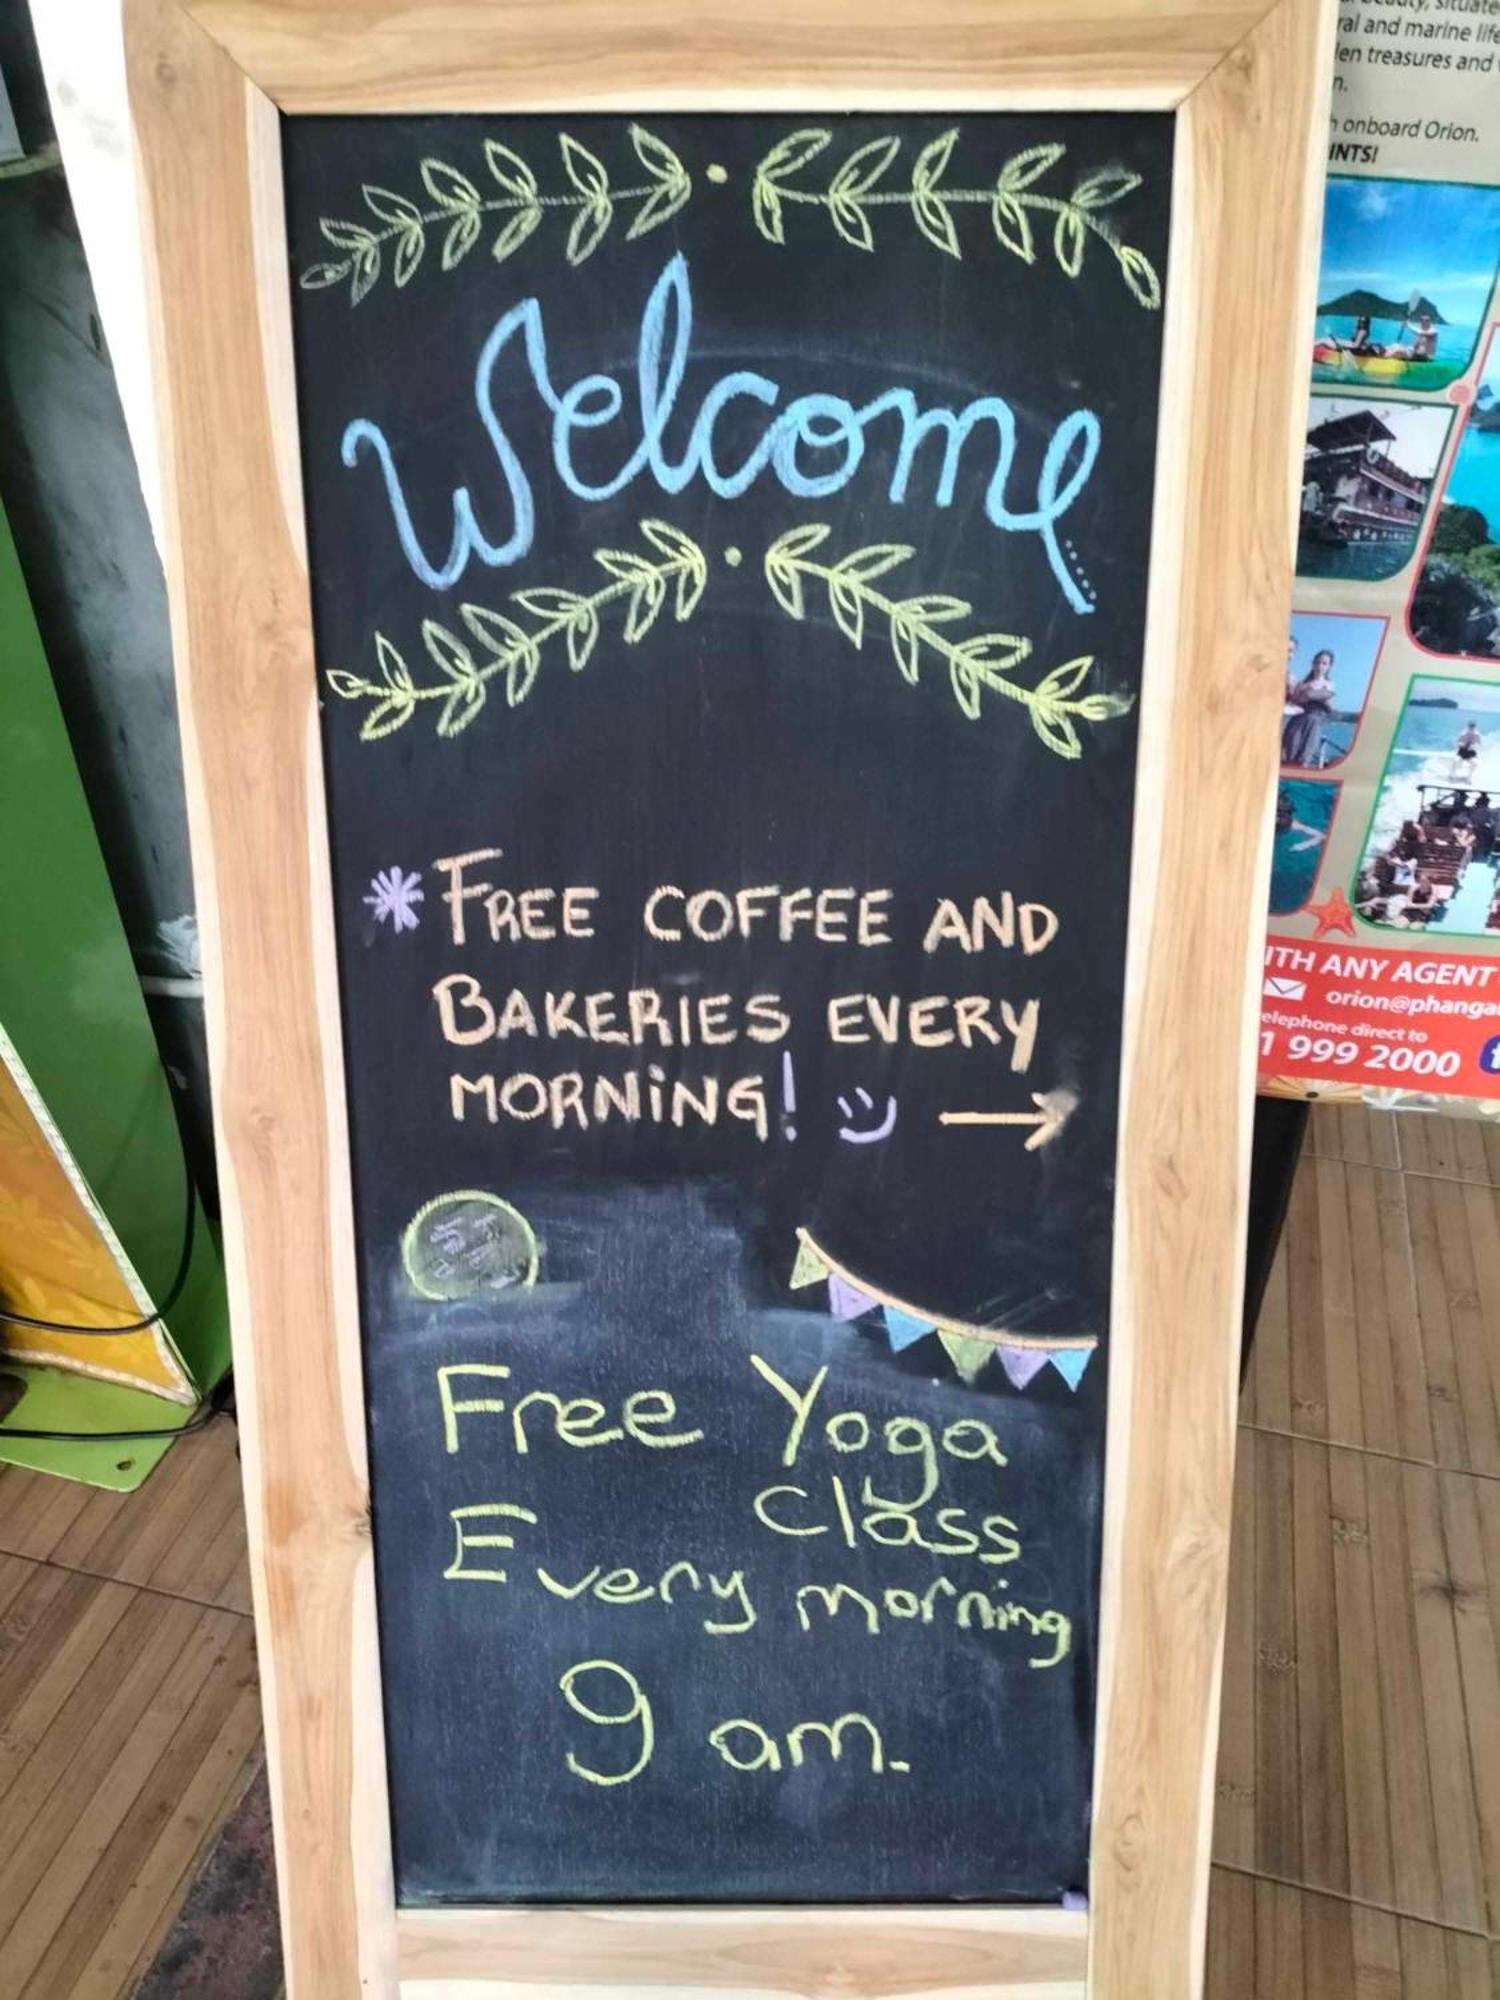 Welcome
* FREE COFFEE AND
BAKERIES EVERY
MORNiNG! →
Free Yoga
class
Every morning
9 am.
situate
ral and marine life
en treasures and
n.
onboard Orion.
INTS!
ITH ANY AGENT
orion@phanga
elephone direct to
1 999 2000